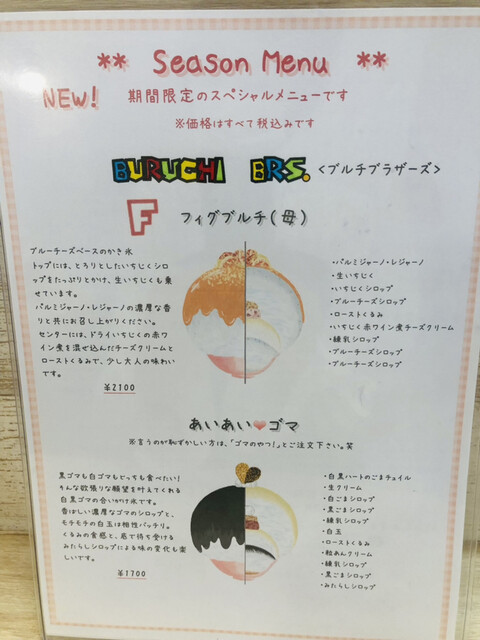 ** Season Menu **
NEW! 期間限定のスペシャルメニューです
※価格はすべて税込みです
BURUCHI BRS. <ブルチブラザーズ>
F フィグブルチ(母)
ブルーチーズベースのかき氷
トップには、とろりとしたいちじくシロ
ップをたっぷりとかけ、生いちじくも乗
せています。
パルミジャーノ・レジャーノの濃厚な香
りと共にお召し上がりください。
センターには、ドライいちじくの赤ワ
イン煮を混ぜ込んだチーズクリームと
ローストくるみで、少し大人の味わい
です。
¥2100
・パルミジャーノ・レジャーノ
・生いちじく
・いちじくシロップ
・ブルーチーズシロップ
・ローストくるみ
・いちじく赤ワイン煮チーズクリーム
・練乳シロップ
・ブルーチーズシロップ
・ブルーチーズシロップ
あいあい❤ゴマ
※言うのが恥ずかしい方は、「ゴマのやつ!」とご注文下さい。笑
黒ゴマも白ゴマもどっちも食べたい!
そんな欲張りな願望を叶えてくれる
白黒ゴマの合いがけ氷です。
香ばしい濃厚なゴマのシロップと、
モチモチの白玉は相性バッチリ。
くるみの食感と、底で待ち受ける
みたらしシロップによる味の変化も楽
しいです。
¥1700
・白黒ハートのごまチュイル
・生クリーム
・白ごまシロップ
・黒ごまシロップ
・練乳シロップ
・白玉
・ローストくるみ
・粒あんクリーム
・練乳シロップ
・黒ごまシロップ
・みたらしシロップ